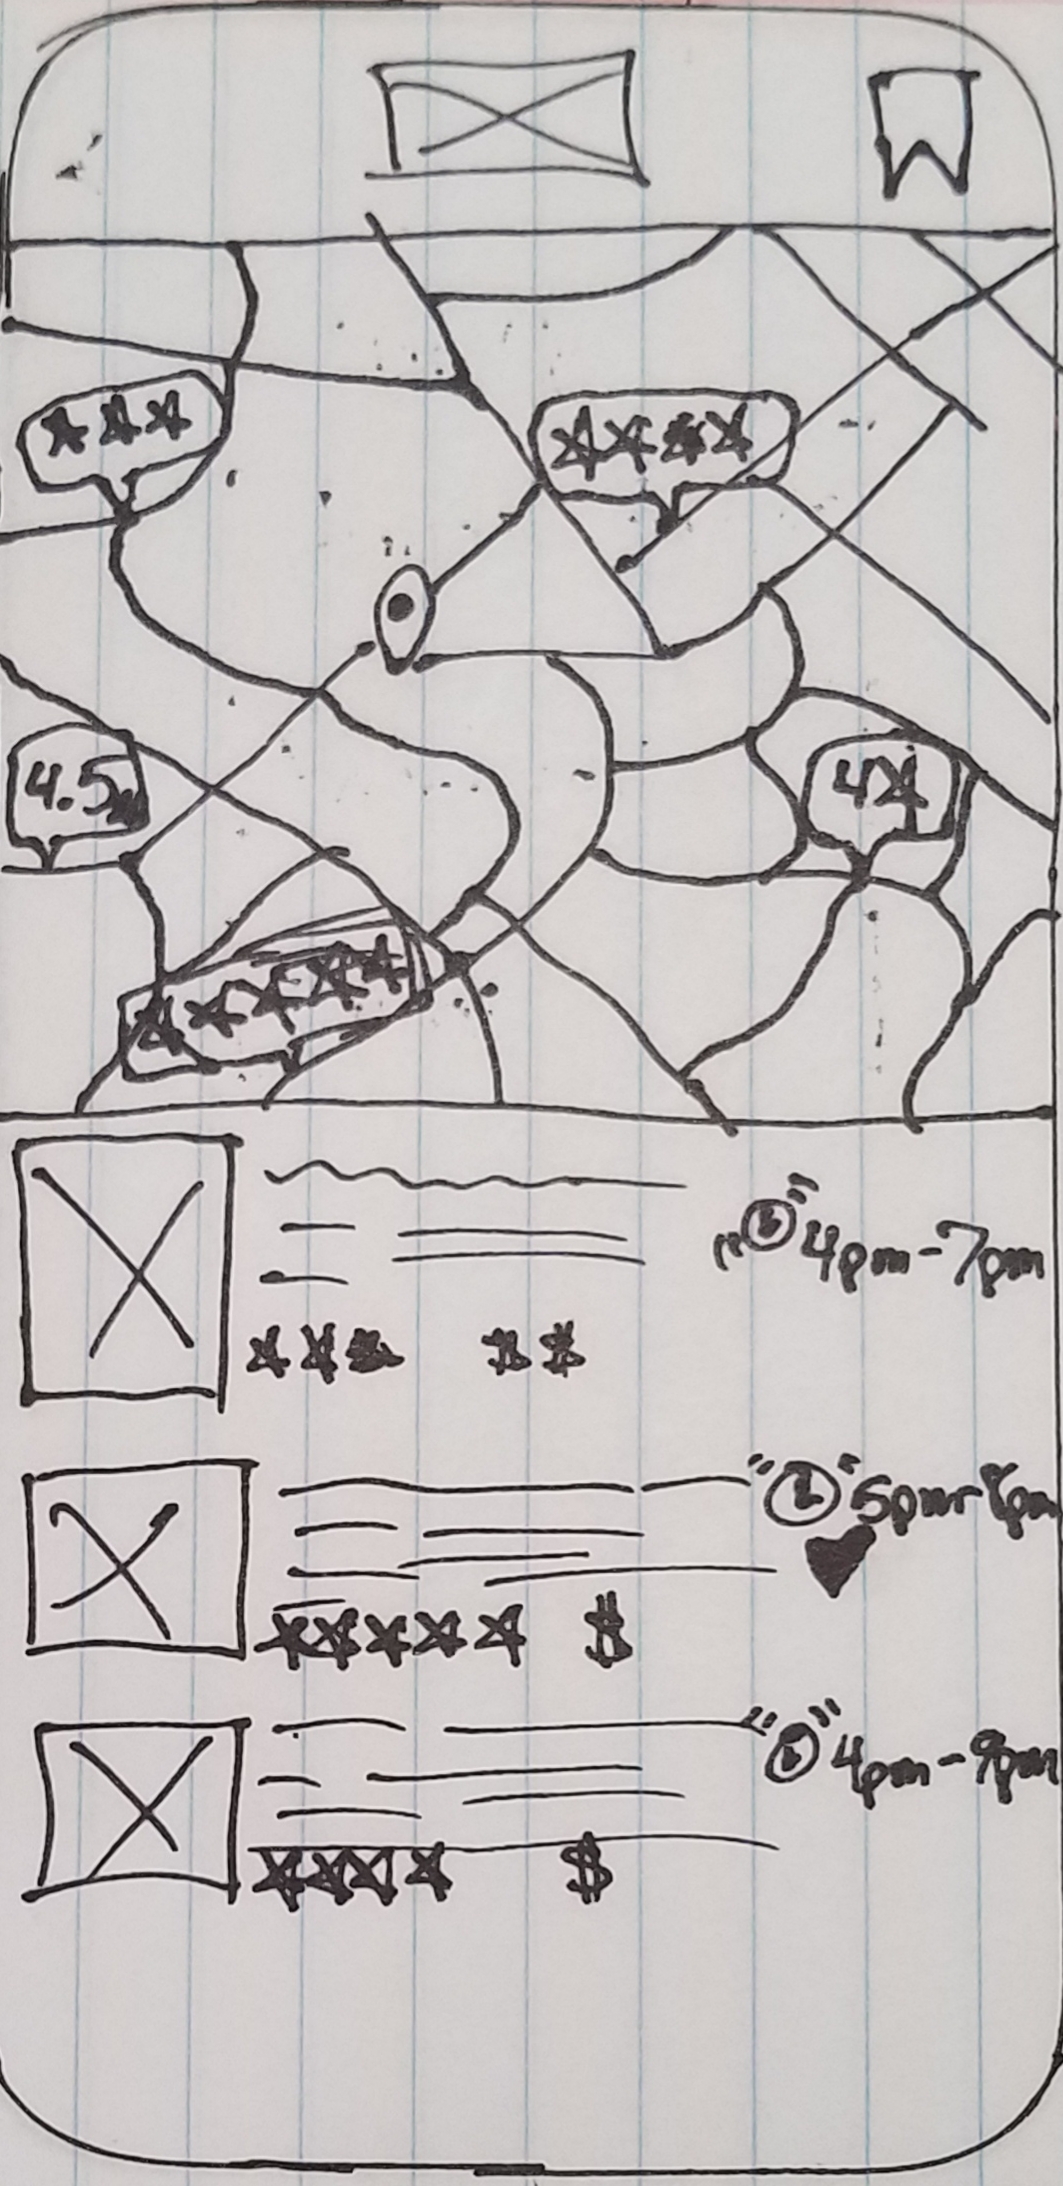 ★★★
★★★★
4.5★
4★
★★★★★
4pm-7pm
★★★ $$
5pm-8pm
★★★★★ $
4pm-9pm
★★★★ $